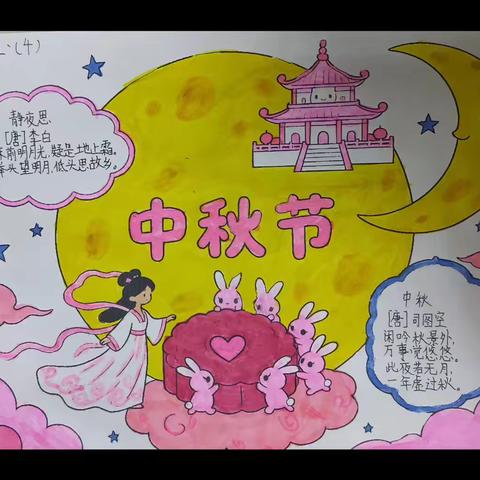 (4)
静夜思
[唐]李白
床前明月光,疑是地上霜。
举头望明月,低头思故乡。
中秋节
中秋
[唐]司图空
闲吟秋景外,
万事觉悠悠。
此夜若无月,
一年虚过秋。